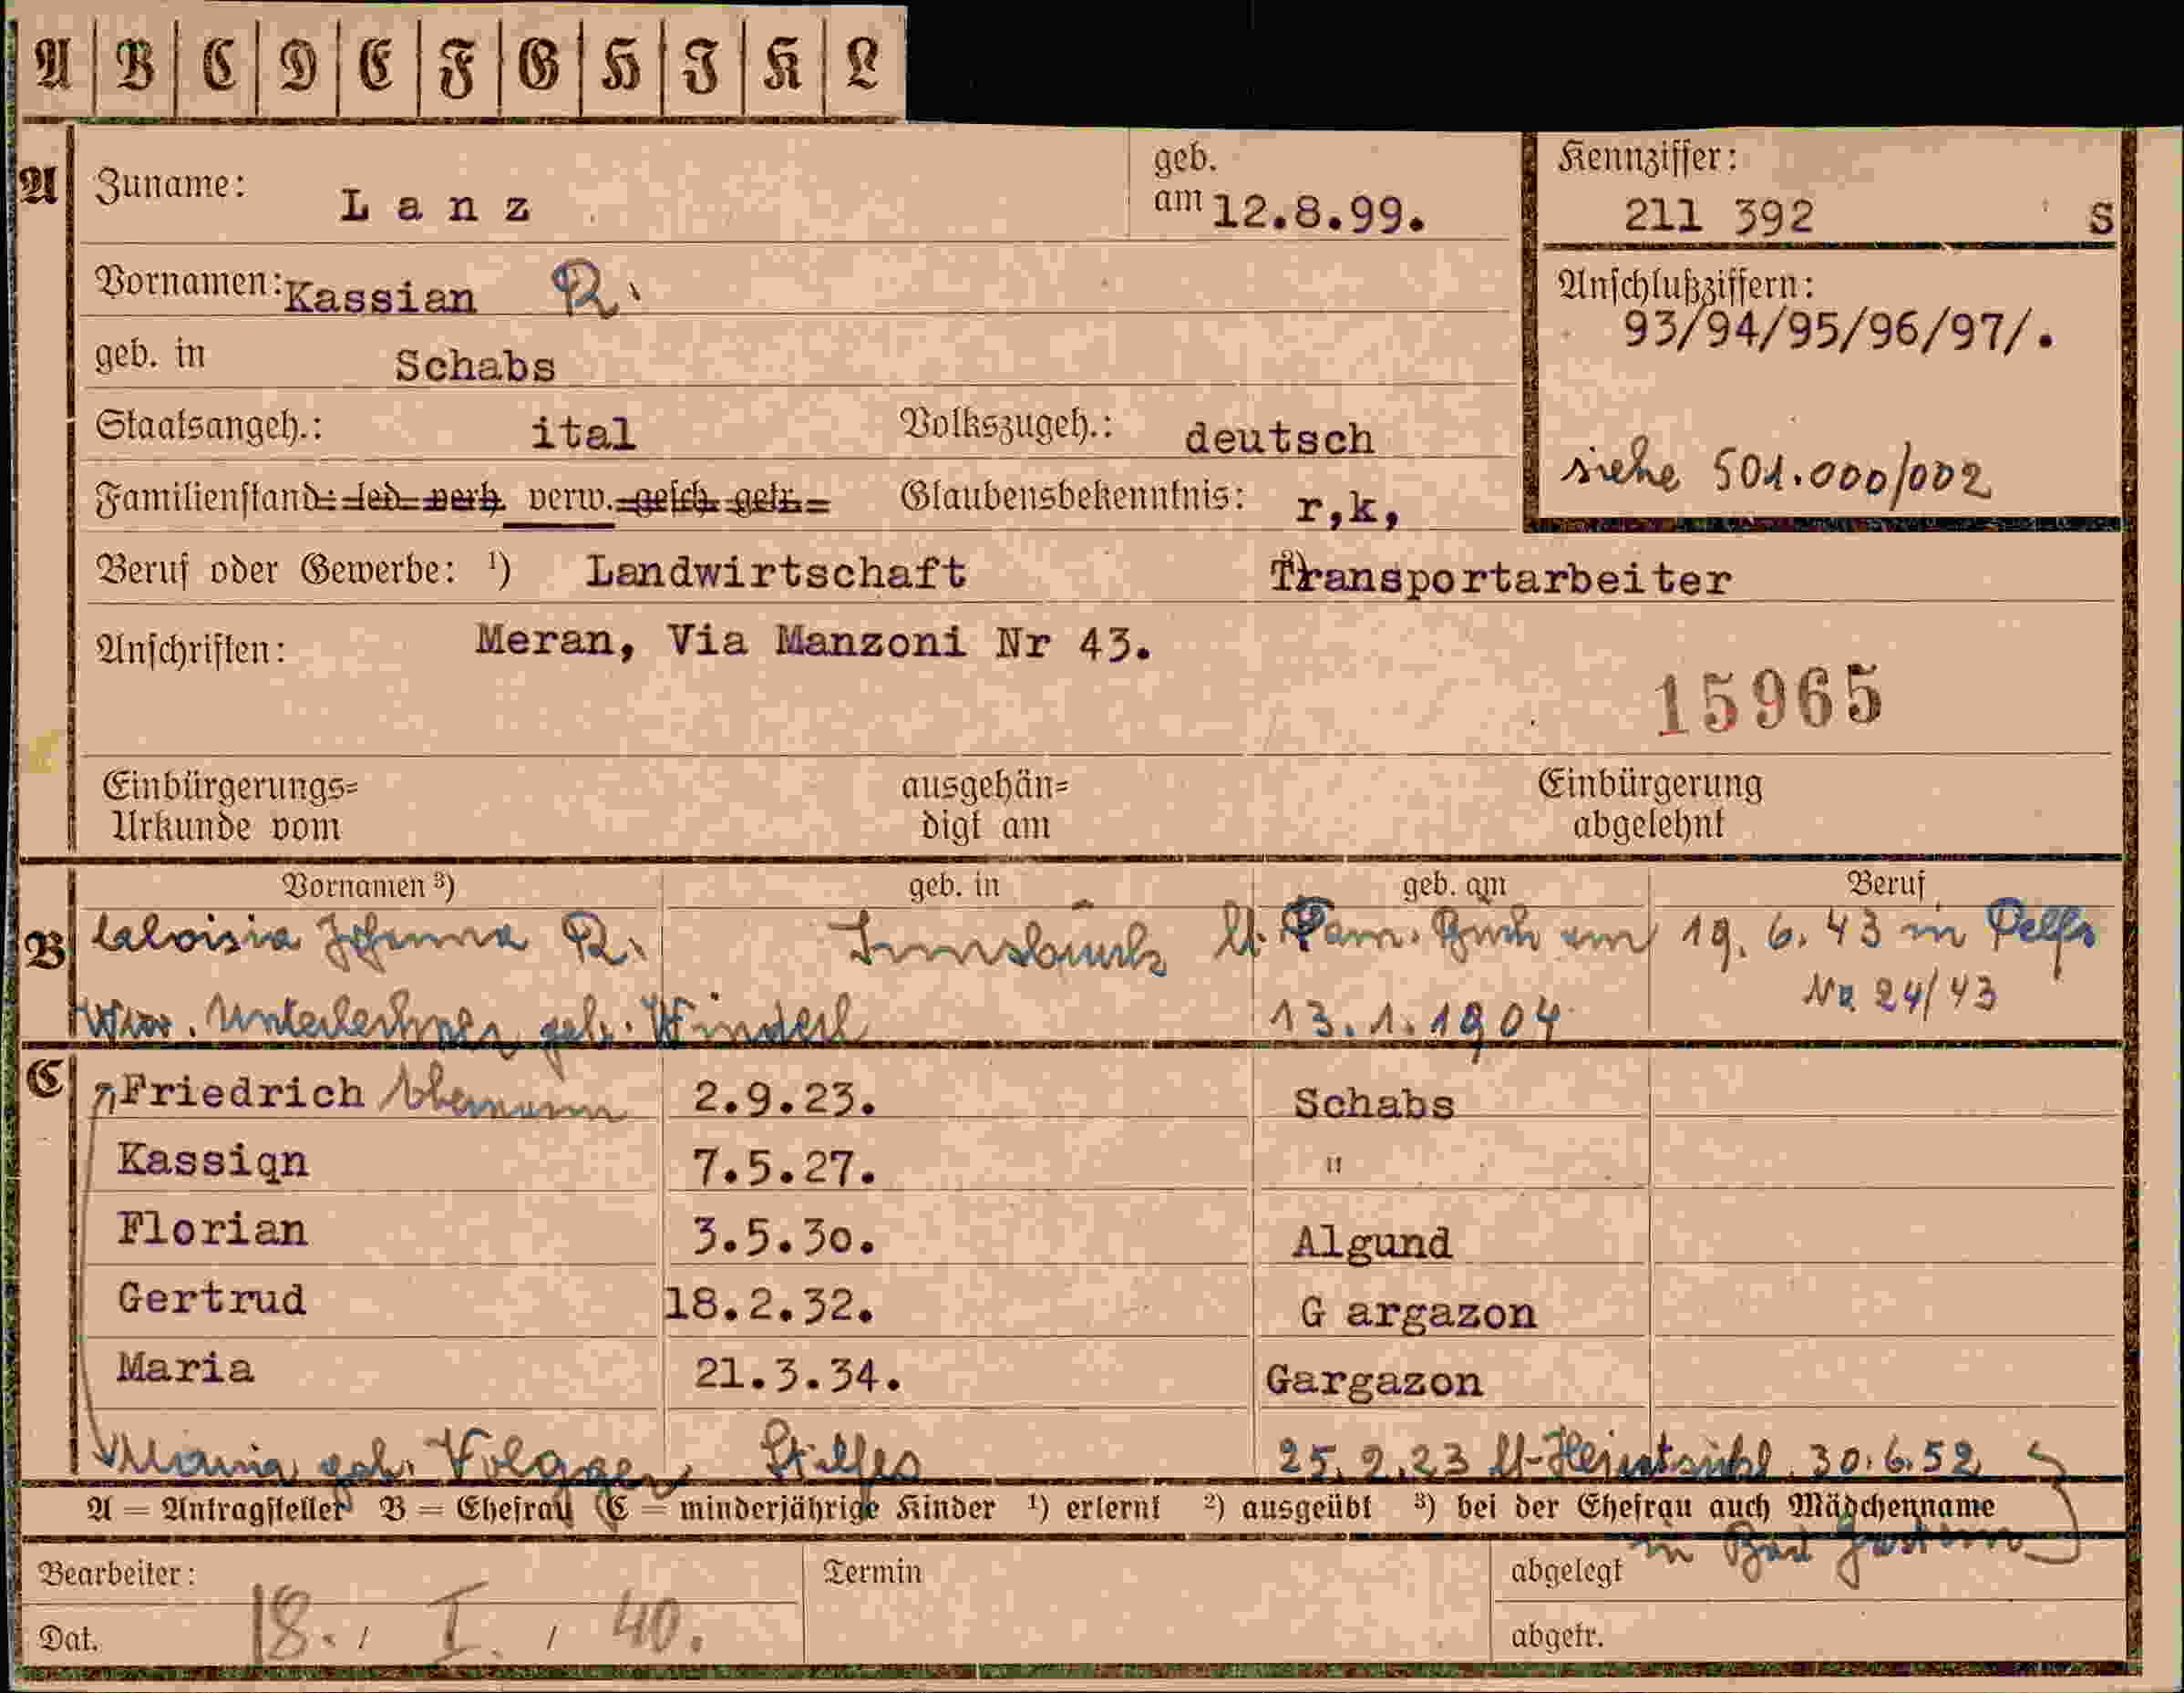 A | B | C | D | E | F | G | H | J | K | L
A Zuname: Lanz geb. am 12.8.99. Kennziffer: 211 392 S
Vornamen: Kassian R.
Anschlußziffern: 93/94/95/96/97/.
geb. in Schabs
Staatsangeh.: ital Volkszugeh.: deutsch
siehe 501.000/002
Familienstand: led. verh. verw. gesch. getr. Glaubensbekenntnis: r,k,
Beruf oder Gewerbe: ¹) Landwirtschaft ²) Transportarbeiter
Anschriften: Meran, Via Manzoni Nr 43.
15965
Einbürgerungs= ausgehän= Einbürgerung
Urkunde vom digt am abgelehnt
Vornamen ³) geb. in geb. am Beruf
B Aloisia Johanna R. Innsbruck lt. Fam. Buch vom 19. 6. 43 in
No 24/43
Wtw. Unterlechner geb. 13.1.1904
C Friedrich 2.9.23. Schabs
Kassiqn 7.5.27. "
Florian 3.5.30. Algund
Gertrud 18.2.32. G argazon
Maria 21.3.34. Gargazon
Maria geb. Volgger Stilfes 25.2.23 30.6.52
A = Antragsteller B = Ehefrau C = minderjährige Kinder ¹) erlernt ²) ausgeübt ³) bei der Ehefrau auch Mädchenname
in Bad Gastein
Bearbeiter: Termin abgelegt
Dat. 18. / I. / 40. abgetr.